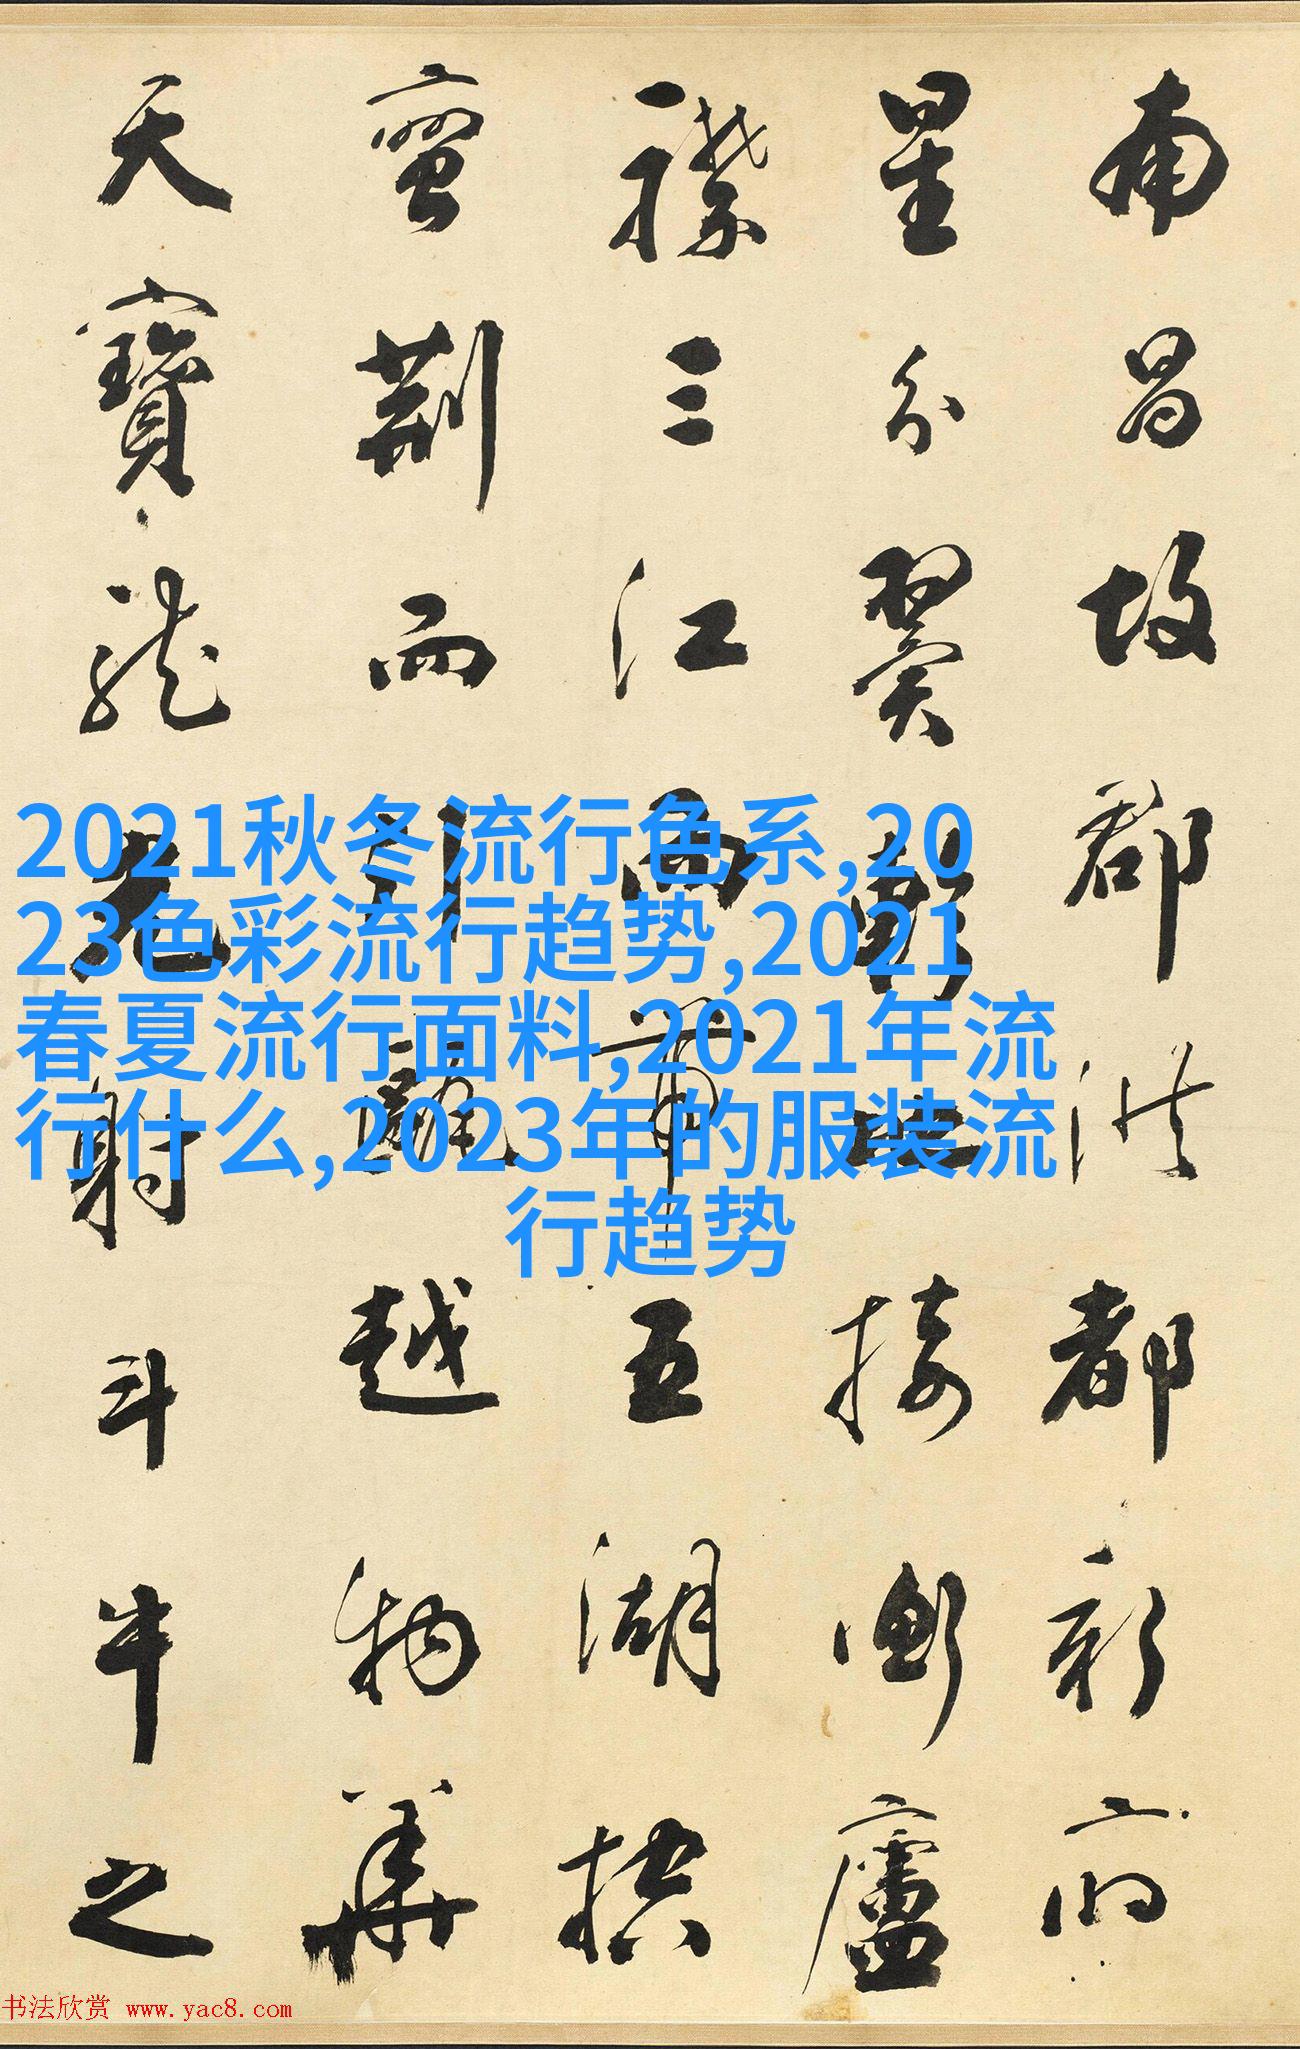 南昌故郡洪都新府
星分翼軫地接衡廬
襟三江而帶五湖控
蠻荊而引甌越物華
天寶龍光射斗牛之
2021秋冬流行色系,20
23色彩流行趋势,2021
春夏流行面料,2021年流
行什么,2023年的服装流
行趋势
书法欣赏 www.yac8.com